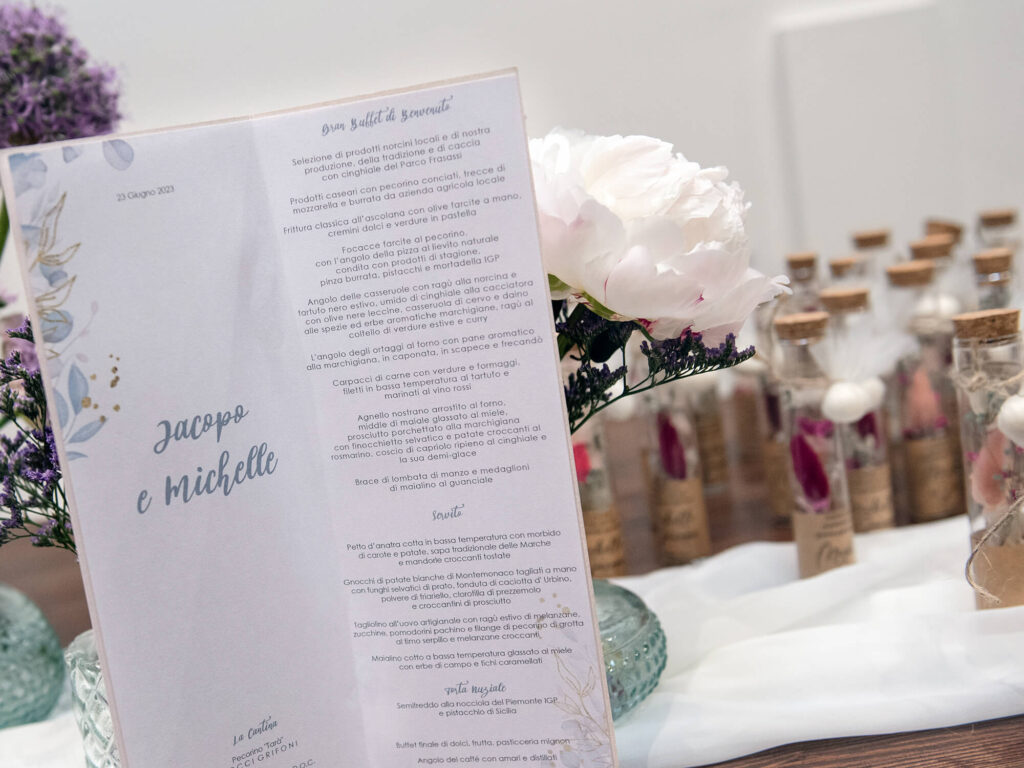 23 Giugno 2023
Jacopo
e Michelle
La Cantina
Pecorino "Tarà"
CCI GRIFONI
D.O.C.
Gran Buffet di Benvenuto
Selezione di prodotti norcini locali e di nostra
produzione, della tradizione e di caccia
con cinghiale del Parco Frasassi
Prodotti caseari con pecorino conciati, trecce di
mozzarella e burrata da azienda agricola locale
Frittura classica all'ascolana con olive farcite a mano,
cremini dolci e verdure in pastella
Focacce farcite al pecorino,
con l'angolo della pizza al lievito naturale
condita con prodotti di stagione,
pinza burrata, pistacchi e mortadella IGP
Angolo delle casseruole con ragù alla norcina e
tartufo nero estivo, umido di cinghiale alla cacciatora
con olive nere leccine, casseruola di cervo e daino
alle spezie ed erbe aromatiche marchigiane, ragù al
coltello di verdure estive e curry
L'angolo degli ortaggi al forno con pane aromatico
alla marchigiana, in caponata, in scapece e frecandò
Carpacci di carne con verdure e formaggi,
filetti in bassa temperatura al tartufo e
marinati al vino rossi
Agnello nostrano arrostito al forno,
middle di maiale glassato al miele,
prosciutto porchettato alla marchigiana
con finocchietto selvatico e patate croccanti al
rosmarino, coscio di capriolo ripieno al cinghiale e
la sua demi-glace
Brace di lombata di manzo e medaglioni
di maialino al guanciale
Servito
Petto d'anatra cotta in bassa temperatura con morbido
di carote e patate, sapa tradizionale delle Marche
e mandorle croccanti tostate
Gnocchi di patate bianche di Montemonaco tagliati a mano
con funghi selvatici di prato, fonduta di caciotta d' Urbino,
polvere di friariello, clorofilla di prezzemolo
e croccantini di prosciutto
Tagliolino all'uovo artigianale con ragù estivo di melanzane,
zucchine, pomodorini pachino e filange di pecorino di grotta
al timo serpillo e melanzane croccanti
Maialino cotto a bassa temperatura glassato al miele
con erbe di campo e fichi caramellati
Torta Nuziale
Semifreddo alla nocciola del Piemonte IGP
e pistacchio di Sicilia
Buffet finale di dolci, frutta, pasticceria mignon
Angolo del caffè con amari e distillati